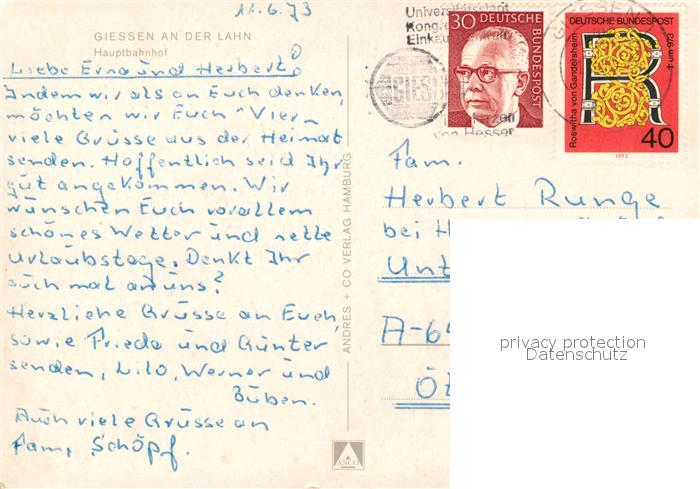 11.6.73
GIESSEN AN DER LAHN
Hauptbahnhof
Liebe Erna und Herbert!
Indem wir als an Euch denken,
möchten wir Euch "Viern"
viele Grüsse aus der Heimat
senden. Hoffentlich seid Ihr
gut angekommen. Wir
wünschen Euch vorallem
schönes Wetter und nette
Urlaubstage. Denkt Ihr
auch mal an uns?
Herzliche Grüsse an Euch,
sowie Frieda und Günter
senden, Lilo, Werner und
Buben.
Auch viele Grüsse an
Fam. Schöpf.
ANDRES + CO VERLAG HAMBURG
ANCO
Universitätsstadt
Einkaufszentrum
GIESSEN
von Hessen
30 DEUTSCHE BUNDESPOST
GIESSEN
DEUTSCHE BUNDESPOST
Roswitha von Gandersheim
† um 973
R
40
1973
Fam.
Herbert Runge
bei H
Unt
A-64
Öt
privacy protection
Datenschutz